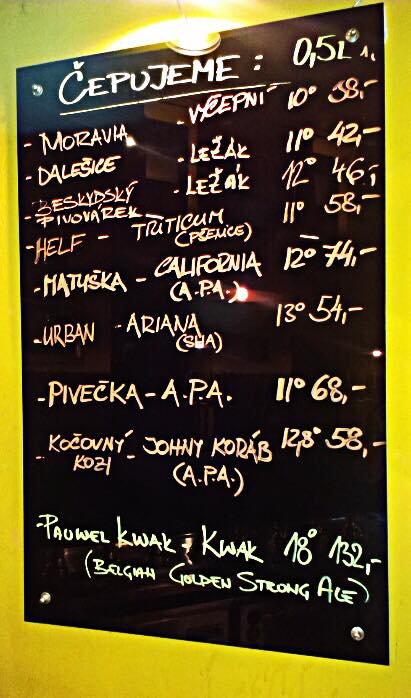 ČEPUJEME: 0,5L
- MORAVIA - VÝČEPNÍ 10° 38,-
- DALEŠICE - LEŽÁK 11° 42,-
- BESKYDSKÝ PIVOVÁREK - LEŽÁK 12° 46,-
- HELF - TRITICUM 11° 58,-
(PŠENICE)
- MATUŠKA - CALIFORNIA 12° 74,-
(A.P.A.)
- URBAN - ARIANA 13° 54,-
(SHA)
- PIVEČKA - A.P.A. 11° 68,-
- KOČOVNÝ KOZI - JOHNY KORÁB 12,8° 58,-
(A.P.A.)
- PAUWEL KWAK - KWAK 18° 132,-
(BELGIAN GOLDEN STRONG ALE)